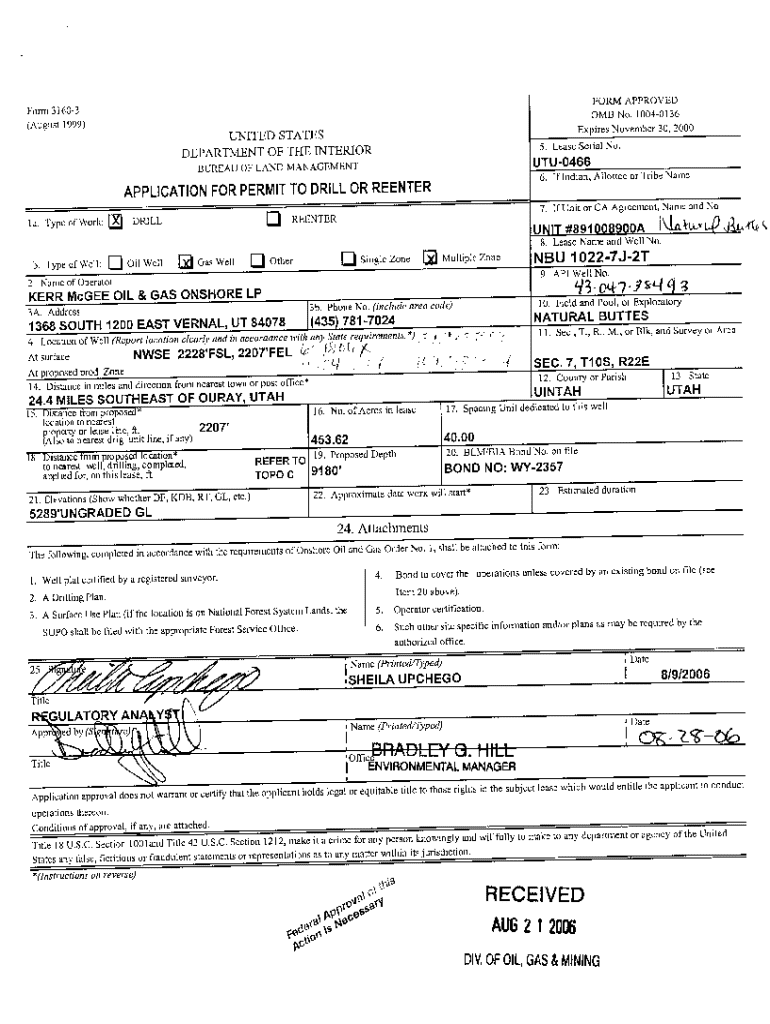 Form 3160-3
(August 1999)
FORM APPROVED
OMB No. 1004-0136
Expires November 30, 2000
UNITED STATES
DEPARTMENT OF THE INTERIOR
BUREAU OF LAND MANAGEMENT
APPLICATION FOR PERMIT TO DRILL OR REENTER
5. Lease Serial No.
UTU-0466
6. If Indian, Allottee or Tribe Name
7. If Unit or CA Agreement, Name and No.
UNIT #891008900A Natural Buttes
1a. Type of Work: X DRILL REENTER
8. Lease Name and Well No.
NBU 1022-7J-2T
b. Type of Well: Oil Well X Gas Well Other Single Zone X Multiple Zone
9. API Well No.
43-047-38493
2. Name of Operator
KERR McGEE OIL & GAS ONSHORE LP
3A. Address
1368 SOUTH 1200 EAST VERNAL, UT 84078
3b. Phone No. (include area code)
(435) 781-7024
10. Field and Pool, or Exploratory
NATURAL BUTTES
4. Location of Well (Report location clearly and in accordance with any State requirements.*)
At surface NWSE 2228'FSL, 2207'FEL
At proposed prod. Zone
11. Sec., T., R., M., or Blk, and Survey or Area
SEC. 7, T10S, R22E
14. Distance in miles and direction from nearest town or post office*
24.4 MILES SOUTHEAST OF OURAY, UTAH
12. County or Parish
UINTAH
13. State
UTAH
15. Distance from proposed*
location to nearest
property or lease line, ft.
(Also to nearest drig. unit line, if any)
2207'
16. No. of Acres in lease
453.62
17. Spacing Unit dedicated to this well
40.00
18. Distance from proposed location*
to nearest well, drilling, completed,
applied for, on this lease, ft.
REFER TO
TOPO C
19. Proposed Depth
9180'
20. BLM/BIA Bond No. on file
BOND NO: WY-2357
21. Elevations (Show whether DF, KDB, RT, GL, etc.)
5289'UNGRADED GL
22. Approximate date work will start*
23. Estimated duration
24. Attachments
The following, completed in accordance with the requirements of Onshore Oil and Gas Order No. 1, shall be attached to this form:
1. Well plat certified by a registered surveyor.
2. A Drilling Plan.
3. A Surface Use Plan (if the location is on National Forest System Lands, the
SUPO shall be filed with the appropriate Forest Service Office.
4. Bond to cover the operations unless covered by an existing bond on file (see
Item 20 above).
5. Operator certification.
6. Such other site specific information and/or plans as may be required by the
authorized office.
25. Signature
Sheila Upchego
Name (Printed/Typed)
SHEILA UPCHEGO
Date
8/9/2006
Title
REGULATORY ANALYST
Approved by (Signature)
Bradley Hill
Name (Printed/Typed)
BRADLEY G. HILL
Date
08-28-06
Title
Office
ENVIRONMENTAL MANAGER
Application approval does not warrant or certify that the applicant holds legal or equitable title to those rights in the subject lease which would entitle the applicant to conduct
operations thereon.
Conditions of approval, if any, are attached.
Title 18 U.S.C. Section 1001and Title 43 U.S.C. Section 1212, make it a crime for any person knowingly and willfully to make to any department or agency of the United
States any false, fictitious or fraudulent statements or representations as to any matter within its jurisdiction.
*(Instructions on reverse)
Federal Approval of this
Action is Necessary
RECEIVED
AUG 21 2006
DIV. OF OIL, GAS & MINING